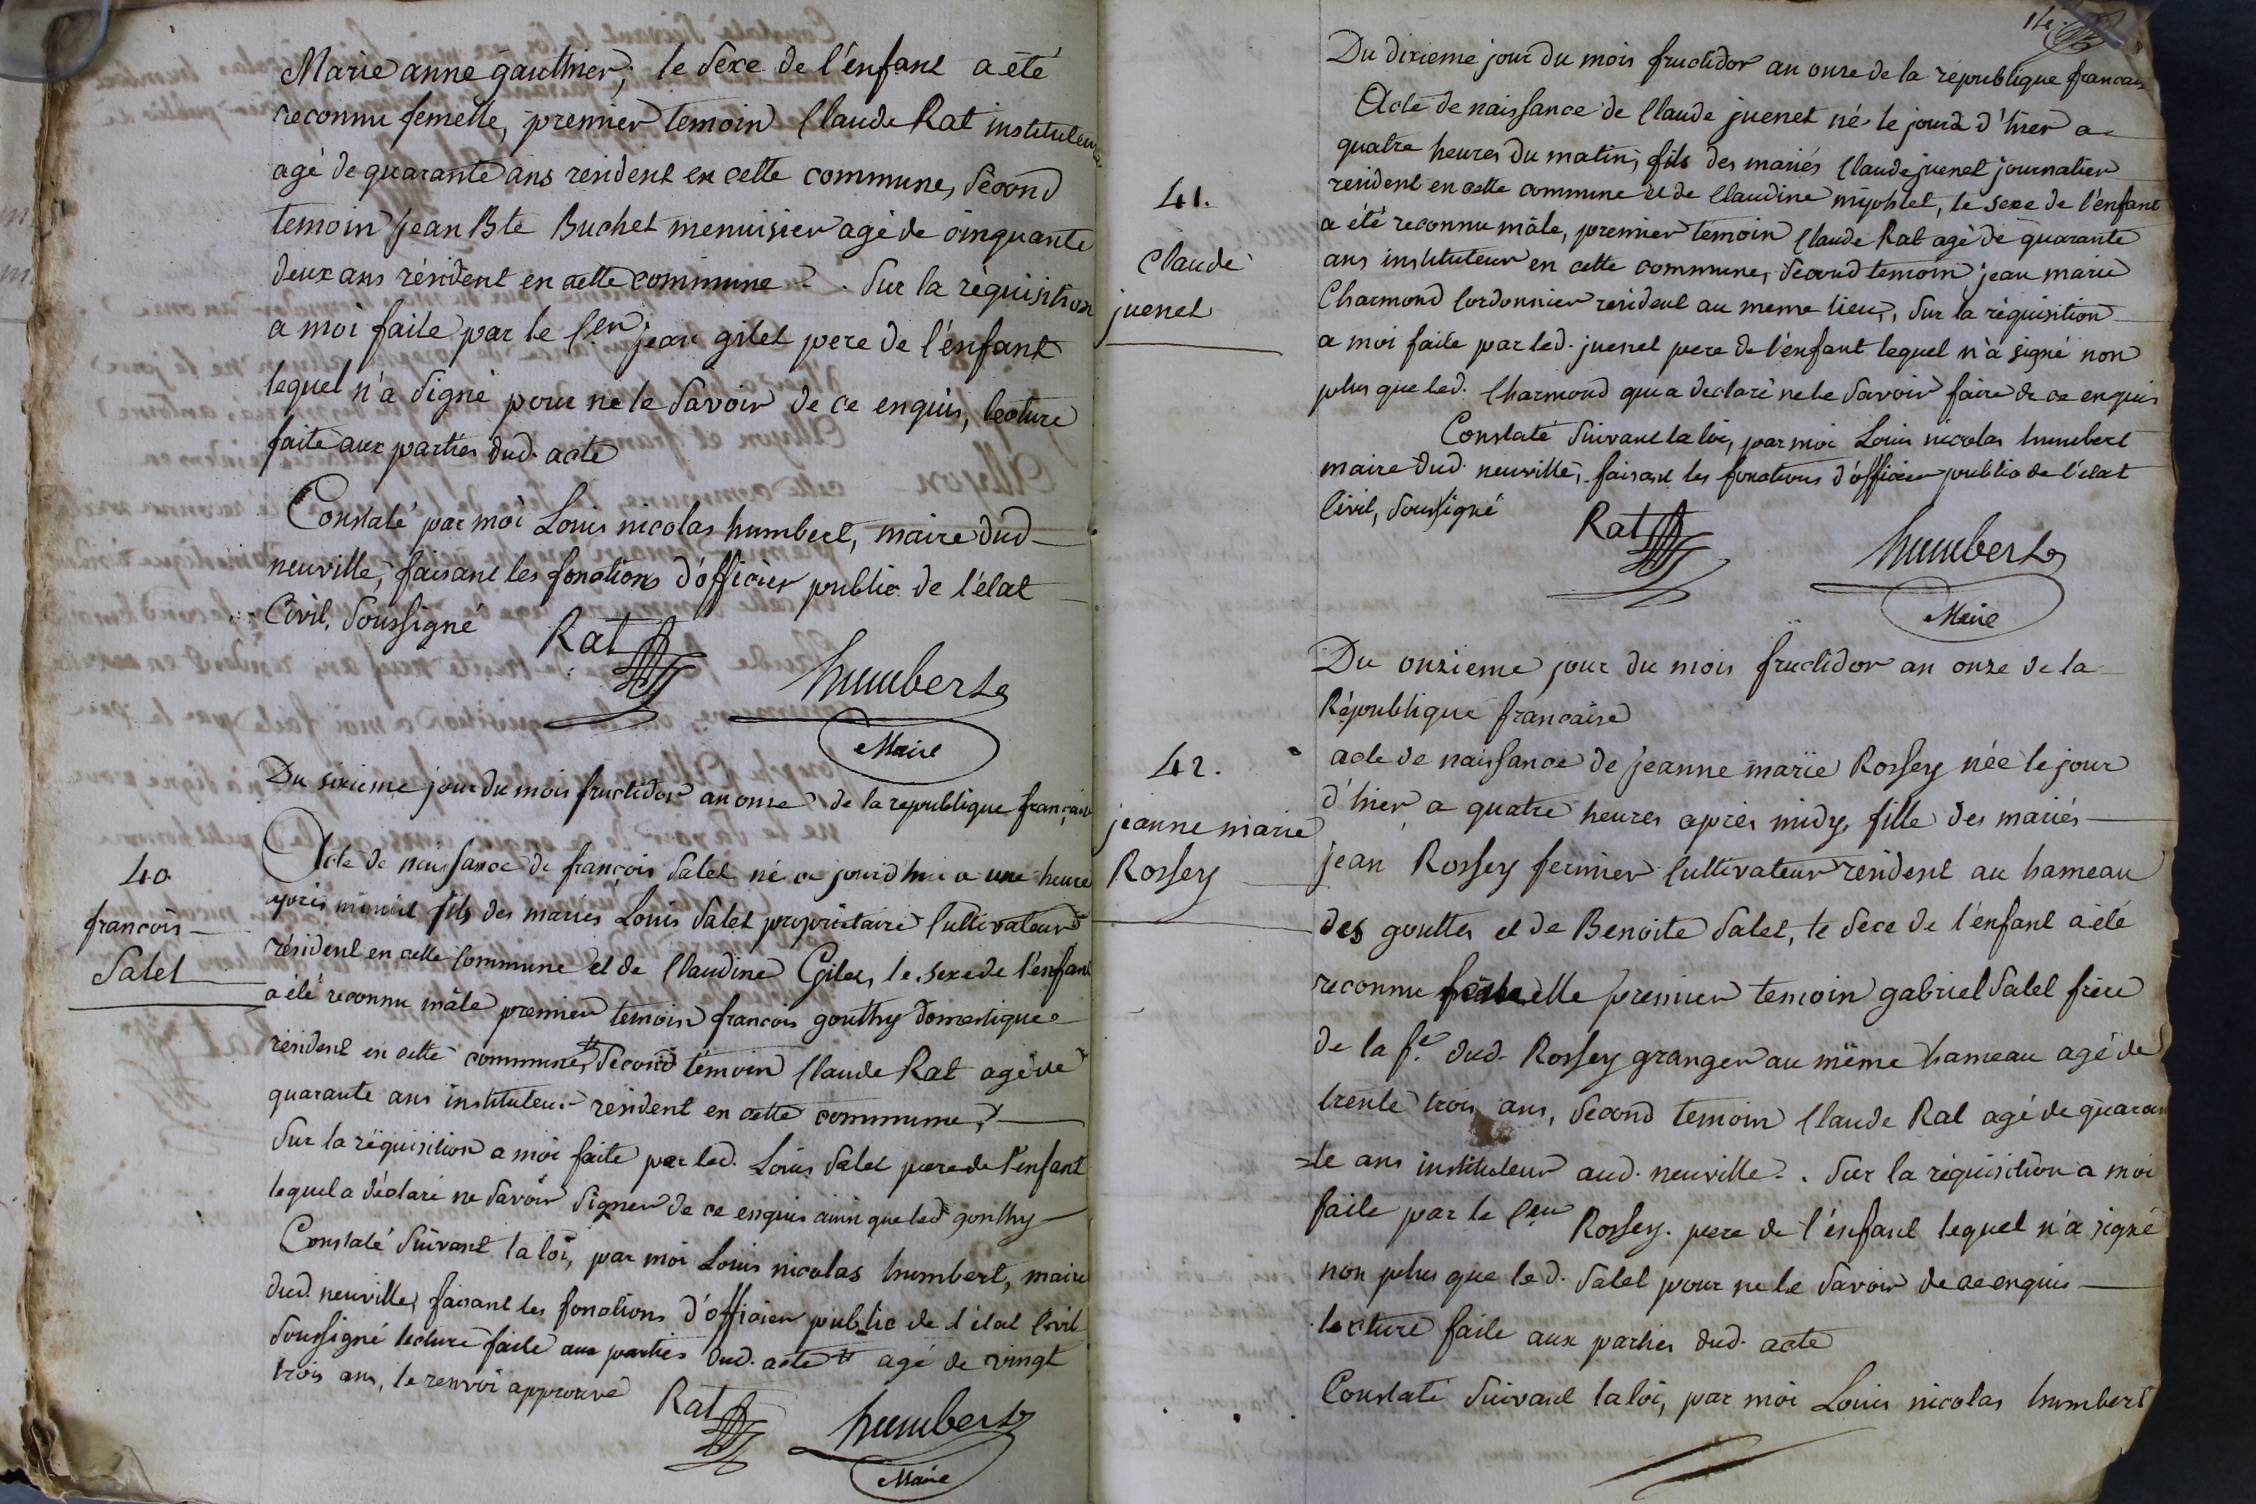 Marie anne gauthier; le Sexe de l'enfant a été
reconnu femelle, premier temoin Claude Rat instituteur
agé de quarante ans resident en cette commune, Second
temoin jean Bte Buchet menuisier agé de cinquante
deux ans résident en cette commune . Sur la réquisition
a moi faite par le C.en jean gilet pere de l'enfant
lequel n'a Signé pour ne le Savoir de ce enquis, lecture
faite aux parties dud. acte
Constaté par moi Louis nicolas humbert, maire dud
neuville, faisant les fonctions d'officier public de l'état
Civil, Soussigné
Rat
humbert
Maire
Du sixieme jour du mois fructidor an onze de la republique française
40
françois
Salet
Acte de naissance de françois Salet né ce jourd'hui a une heure
après minuit fils des mariés Louis Salet propriétaire Cultivateur
résident en cette Commune et de Claudine Gilet, le sexe de l'enfant
a été reconnu mâle premier temoin francois gouthy domestique
résident en cette commune, Second témoin Claude Rat agé de
quarante ans instituteur résident en cette commune,
Sur la réquisition a moi faite par led. Louis Salet pere de l'enfant
lequel a déclaré ne Savoir Signer de ce enquis ainsi que led. gouthy
Constaté Suivant la loi, par moi Louis nicolas humbert, maire
dud. neuville, faisant les fonctions d'officier public de l'état Civil
Soussigné lecture faite aux parties dud. acte # agé de vingt
trois ans, le renvoi approuvé
Rat
humbert
Maire
14.
Du dixieme jour du mois fructidor an onze de la republique francaise
41.
Claude
juenet
Acte de naissance de Claude juenet né le jourd d'hier a
quatre heures du matin; fils des mariés Claude juenet journalier
resident en cette commune et de Claudine, le sexe de l'enfant
a été reconnu mâle, premier temoin Claude Rat agé de quarante
ans instituteur en cette commune, Second temoin jean marie
Charmond Cordonnier resident au meme lieu, Sur la réquisition
a moi faite par led. juenet pere de l'enfant lequel n'a signé non
plus que led. Charmond qui a declaré ne le Savoir faire de ce enquis
Constaté Suivant la loi, par moi Louis nicolas humbert
maire dud. neuville, faisant les fonctions d'officier public de l'état
Civil, Soussigné
Rat
humbert
Maire
Du onzieme jour du mois fructidor an onze de la
République francaise
42.
jeanne marie
Rossey
acte de naissance de jeanne marie Rossey née le jour
d'hier a quatre heures après midy, fille des mariés
jean Rossey fermier Cultivateur résident au hameau
des gouttes et de Benoite Salet, le Sexe de l'enfant a été
reconnu femelle premier temoin gabriel Salet frere
de la f.e dud. Rossey granger au même hameau agé de
trente trois ans, Second temoin Claude Rat agé de quaran
=te ans instituteur aud. neuville . Sur la réquisition a moi
faite par le C.en Rossey pere de l'enfant lequel n'a signé
non plus que led. Salet pour ne le Savoir de ce enquis
lecture faite aux parties dud. acte
Constaté Suivant la loi, par moi Louis nicolas humbert